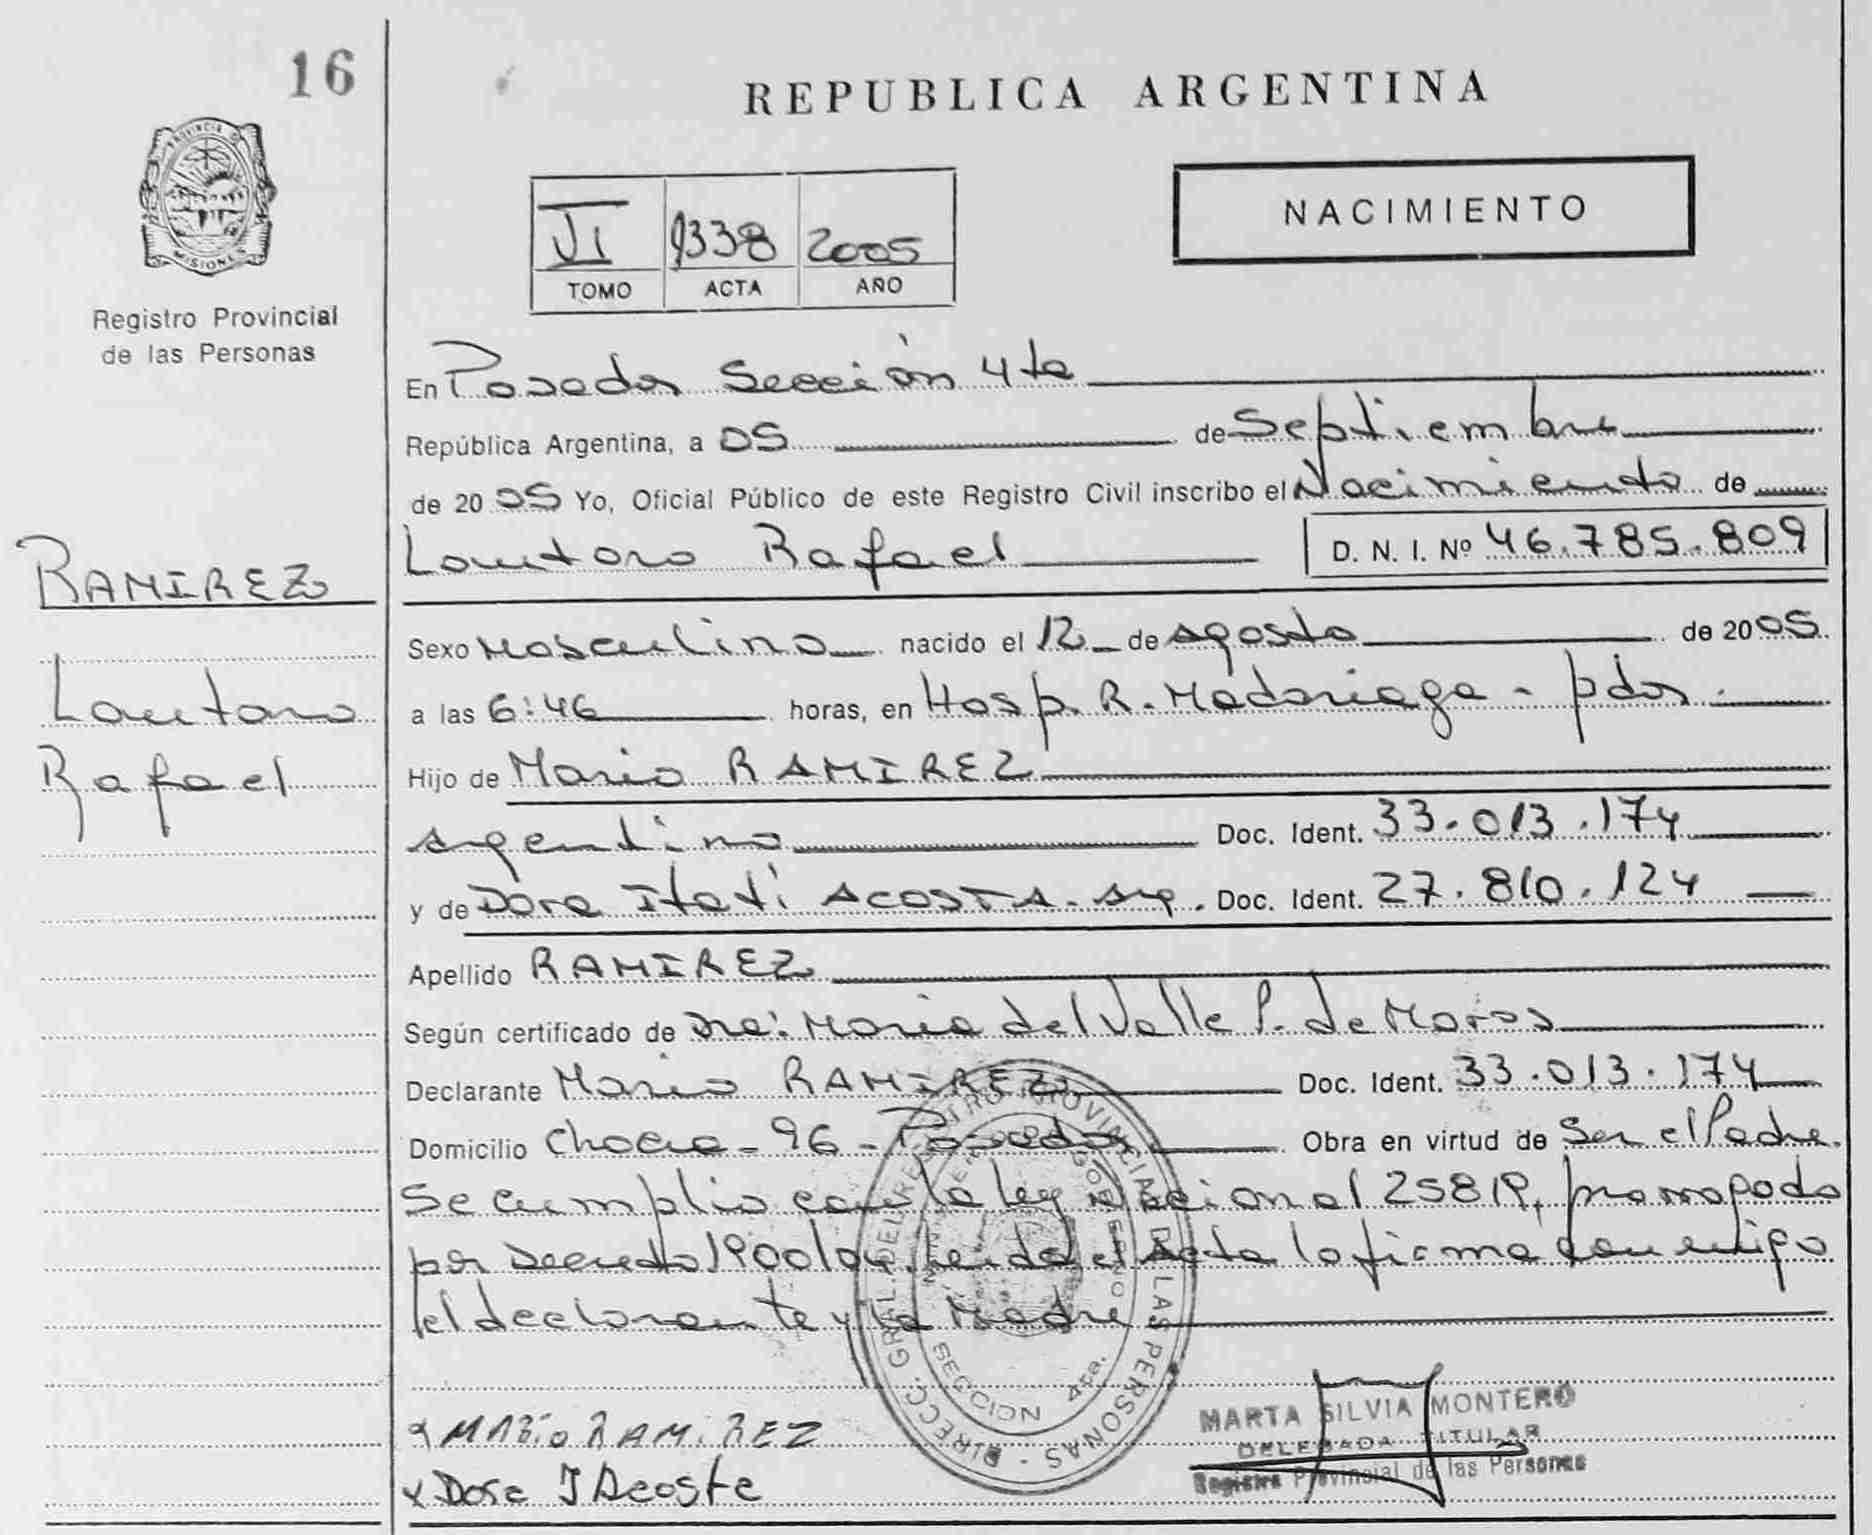 16
REPUBLICA ARGENTINA
PROVINCIA DE
MISIONES
Registro Provincial
de las Personas
VI 1338 2005
TOMO ACTA AÑO
NACIMIENTO
En Posadas Sección 4ta
República Argentina, a 05 de Septiembre
de 2005 Yo, Oficial Público de este Registro Civil inscribo el Nacimiento de
Lautaro Rafael D. N. I. Nº 46.785.809
RAMIREZ
Lautaro
Rafael
Sexo Masculino nacido el 12 de agosto de 2005.
a las 6:46 horas, en Hosp. R. Madariaga - pdas.
Hijo de Mario RAMIREZ
argentino Doc. Ident. 33.013.174
y de Dora Itatí ACOSTA - arg. Doc. Ident. 27.810.124
Apellido RAMIREZ
Según certificado de Dra: María del Valle P. de Moros
Declarante Mario RAMIREZ Doc. Ident. 33.013.174
Domicilio Chacra - 96 - Posadas Obra en virtud de Ser el Padre.
Se cumplio con la ley Nacional 25819, prorrogada
por Decreto 1900/04. Leida el Acta la firma conmigo
el declarante y la Madre
DIRECC. GRAL. DEL REGISTRO PROVINCIAL DE LAS PERSONAS
SECCION 4ta.
x MARiO RAMiREZ
x Dora I Acosta
MARTA SILVIA MONTERO
DELEGADA TITULAR
Registro Provincial de las Personas